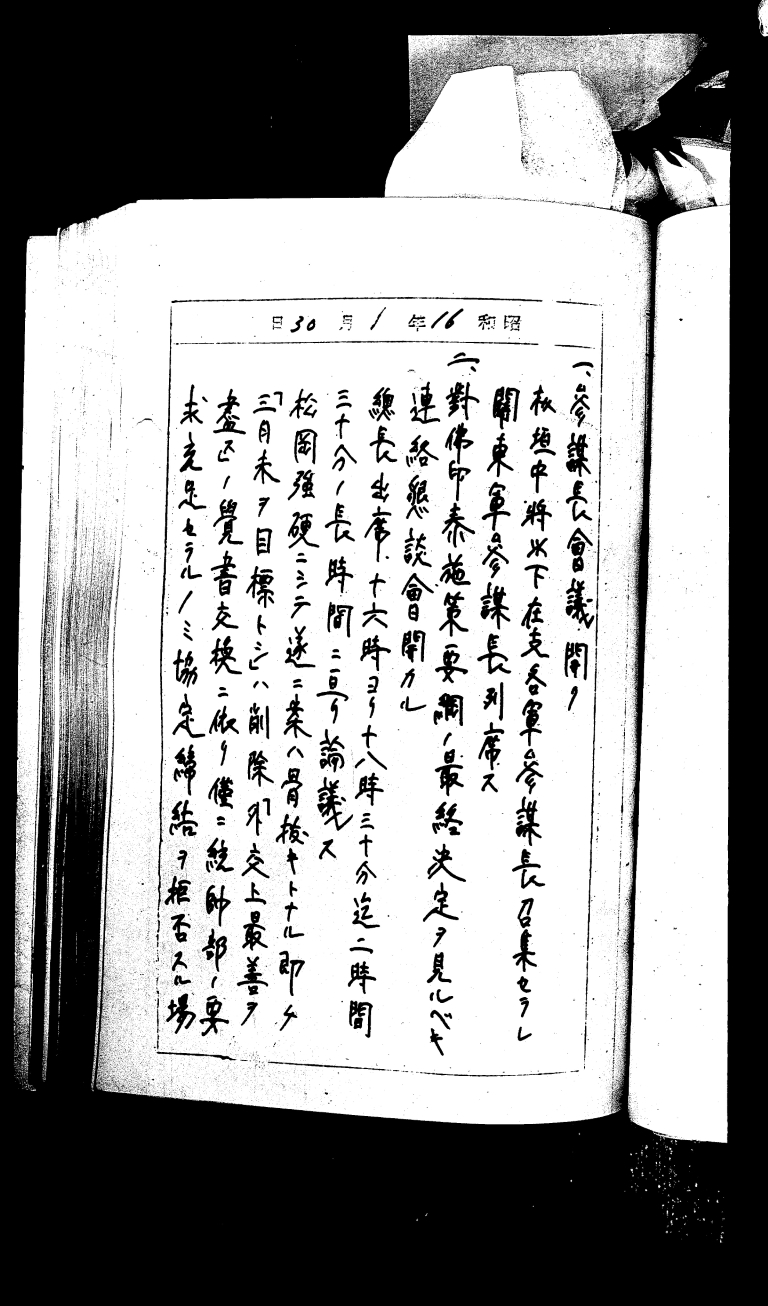 昭和16年1月30日
一、參謀長會議開ク
板垣中将以下在支各軍參謀長召集セラレ
關東軍參謀長列席ス
二、對佛印泰施策要綱ノ最終決定ヲ見ルベキ
連絡懇談會開カル
總長出席十六時ヨリ十八時三十分迄二時間
三十分ノ長時間ニ亘リ論議ス
松岡強硬ニシテ遂ニ案ハ骨抜キトナル即チ
「三月末ヲ目標トシ」ハ削除「外交上最善ヲ
盡ス」ノ覺書交換ニ依リ僅ニ統帥部ノ要
求充足セラルノミ協定締結ヲ拒否スル場